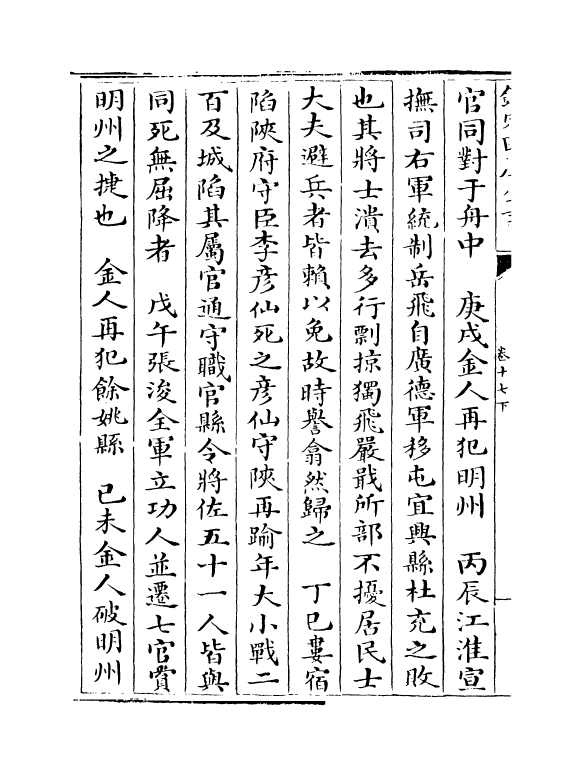 官同對于舟中　庚戌金人再犯明州　丙辰江淮宣
撫司右軍統制岳飛自廣德軍移屯宜興縣杜充之敗
也其將士潰去多行剽掠獨飛嚴戢所部不擾居民士
大夫避兵者皆賴以免故時譽翕然歸之　丁巳婁宿
陷陜府守臣李彦仙死之彦仙守陜再踰年大小戰二
百及城陷其屬官通守職官縣令將佐五十一人皆與
同死無屈降者　戊午張浚全軍立功人並遷七官賞
明州之捷也　金人再犯餘姚縣　已未金人破明州
卷十七下